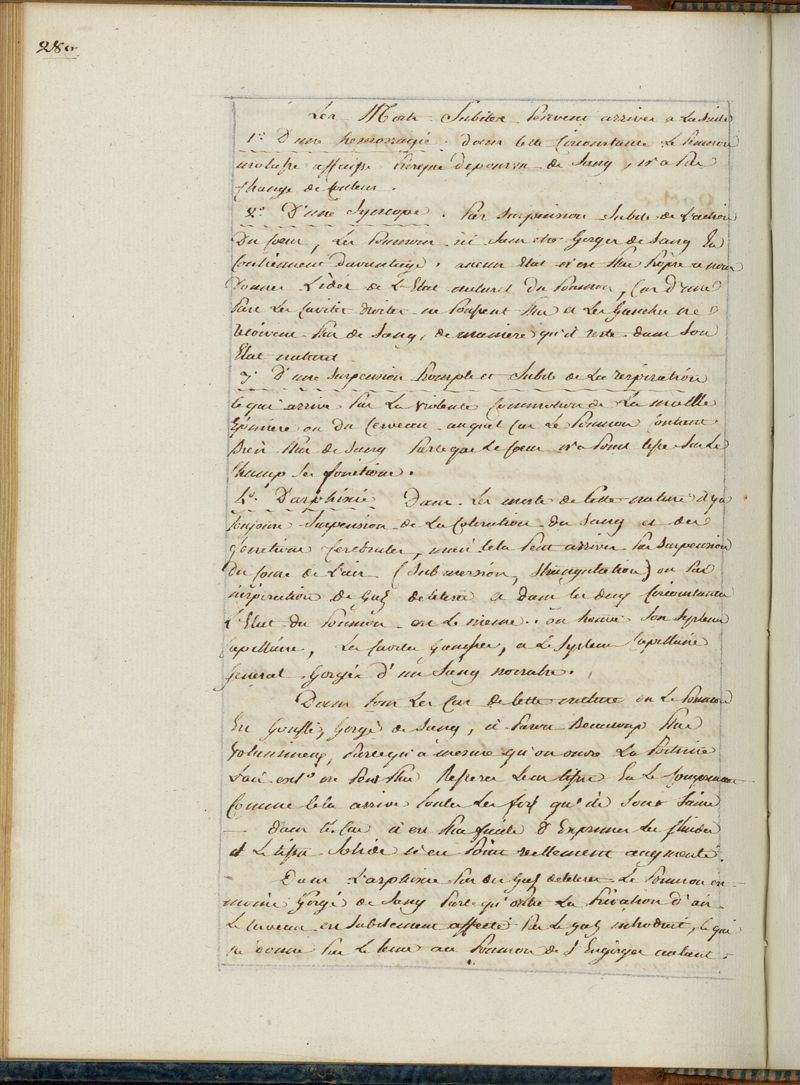 280
Les Morts Subites Peuvent arriver a la suite
1º D'une hemorragie. dans cette Circonstance Le Poumon
affaissé Presque depourvu de Sang, n'a Pas
Changé de Couleur.
2º. D'une Syncope. Par Suspension Subite de L'action
Du Coeur, Les Poumons ni Sans etre Gorgés de Sang En
Contiennent Davantage. aucun Etat n'est Plus Propre a nous
Donner L'idée de L'Etat naturel du Poumon, Car d'une
Part Les Cavités droites ne Poussent Plus et Les Gauches ne
Recoivent Plus de Sang, de maniere qu'il reste dans Son
Etat naturel
3º D'une Suspension Prompte et Subite de La respiration
Ce qui arrive Par La Violente Commotion de La moelle
Epiniere ou du Cerveau auquel Cas Le Poumon Contient
Bien Plus de Sang Parceque Le Coeur n'a Point Cessé Sur Le
Champ Ses fonctions.
4º. D'asphixie Dans Les morts de Cette nature il y a
toujours Suspension de La Coloration du Sang et des
fonctions Cerebrales, mais Cela Peut arriver Par Suspension
Du Cours de L'air (Submersion, Strangulation) ou Par
inspiration de Gaz deletere et dans les deux Circonstances
L'Etat du Poumon est Le meme. on trouve Son Systeme
Capillaire, Les Cavités Gauches, et Le Systeme Capillaire
General Gorgés d'un Sang noiratre.
Dans tous Les Cas de Cette nature ou Le Poumon
Est Gonflé, Gorgé de Sang, il Paroit Beaucoup Plus
Volumineux, Parcequ'a mesure qu'on ouvre La Poitrine
L'air extr ne Peut Plus Resserer Leur tissu En Le Comprimant
Comme Cela arrive toutes Les fois qu'ils Sont Sains
dans Ce Cas il est Plus facile d'Exprimer Les fluides
et Le tissu Solide n'est Point reellement augmenté.
Dans L'asphixie Par des Gaz deleteres Le Poumon est
moins Gorgé de Sang Parce qu'outre La Privation d'air
Le Cerveau est Subitement affecté Par Le Gaz introduit, Ce qui
ne donne Pas Le tems au Poumon de S'Engorger autant.